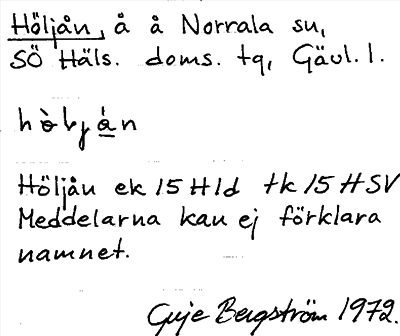 Höljån, å å Norrala sn,
SÖ Häls. doms. tg, Gävl. l.
Höljån ek 15 H 1d tk 15 H SV
Meddelarna kan ej förklara
namnet.
Guje Bergström 1972.